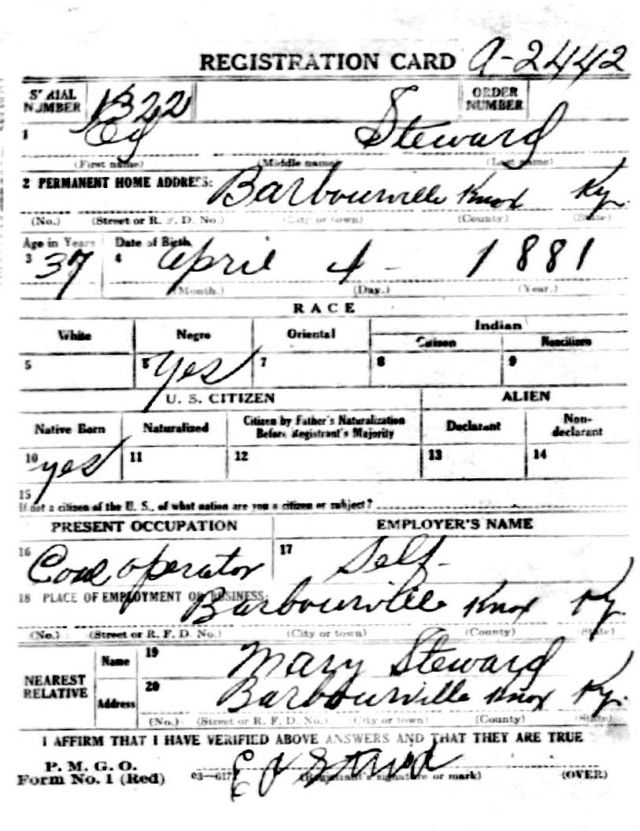 REGISTRATION CARD A-2442
SERIAL NUMBER 1322 ORDER NUMBER
1 Ed Steward
(First name) (Middle name) (Last name)
2 PERMANENT HOME ADDRESS: Barbourville Knox Ky.
(No.) (Street or R. F. D. No.) (City or town) (County) (State)
Age in Years Date of Birth
3 37 4 April 4 - 1881
(Month.) (Day.) (Year.)
RACE
White Negro Oriental Indian
Citizen Noncitizen
5 6 yes 7 8 9
U. S. CITIZEN ALIEN
Native Born Naturalized Citizen by Father's Naturalization Before Registrant's Majority Declarant Non-declarant
10 yes 11 12 13 14
15
If not a citizen of the U. S., of what nation are you a citizen or subject?
PRESENT OCCUPATION EMPLOYER'S NAME
16 Coal operator 17 Self-
18 PLACE OF EMPLOYMENT OR BUSINESS: Barbourville Knox Ky.
(No.) (Street or R. F. D. No.) (City or town) (County) (State)
NEAREST RELATIVE Name 19 Mary Steward
Address 20 Barbourville Knox Ky.
(No.) (Street or R. F. D. No.) (City or town) (County) (State)
I AFFIRM THAT I HAVE VERIFIED ABOVE ANSWERS AND THAT THEY ARE TRUE
P. M. G. O.
Form No. 1 (Red) 03-617 Ed (Registrant's signature or mark) (OVER)